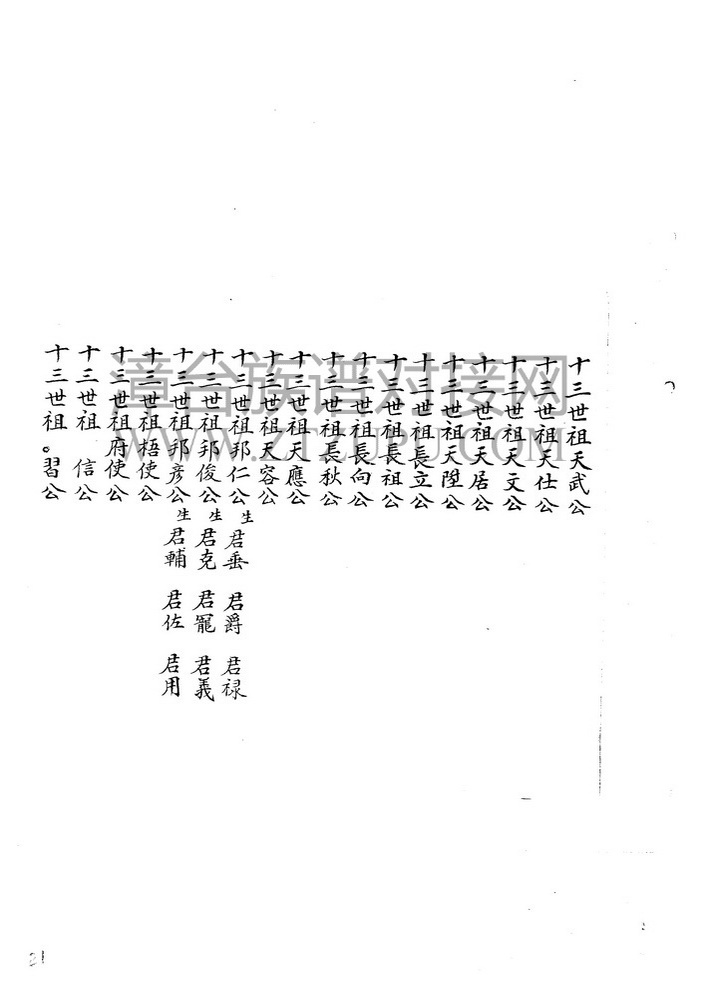 十三世祖天武公
十三世祖天仕公
十三世祖天文公
十三世祖天居公
十三世祖天陞公
十三世祖長立公
十三世祖長祖公
十三世祖長向公
十三世祖長秋公
十三世祖天應公
十三世祖天容公
十三世祖邦仁公生君垂 君爵 君禄
十三世祖邦俊公生君克 君寵 君義
十三世祖邦彦公生君輔 君佐 君用
十三世祖梧使公
十三世祖府使公
十三世祖 信公
十三世祖。習公
漳台族谱对接网
WWW.ZTZUPU.COM
21